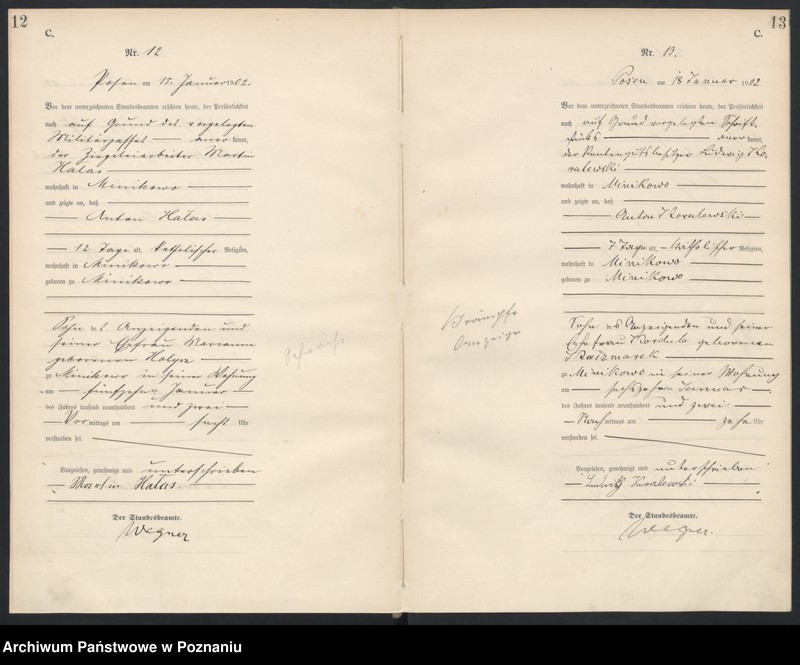 12
C.
Nr. 12
Posen am 15. Januar 1902.
Vor dem unterzeichneten Standesbeamten erschien heute, der Persönlichkeit
nach auf Grund des vorgelegten
Militärpasses — anerkannt,
der Ziegeleiarbeiter Martin
Hałas
wohnhaft in Minikowo
und zeigte an, daß
Anton Hałas
12 Tage alt, katholischer Religion,
wohnhaft in Minikowo
geboren zu Minikowo
Sohn des Anzeigenden und
seiner Ehefrau Marianna
geborenen
zu Minikowo in seiner Wohnung
am fünfzehnten Januar
des Jahres tausend neunhundert und zwei
Vormittags um sechs Uhr
verstorben sei.
Vorgelesen, genehmigt und unterschrieben
Martin Hałas.
Der Standesbeamte.
Wegner
13
C.
Nr. 13.
Posen am 18 Januar 1902
Vor dem unterzeichneten Standesbeamten erschien heute, der Persönlichkeit
nach auf Grund vorgelegten Schrift-
stücks — anerkannt,
der Rentengutsbesitzer Ludwig Ko-
ralewski
wohnhaft in Minikowo
und zeigte an, daß
Anton Koralewski
7 Tage alt, katholischer Religion,
wohnhaft in Minikowo
geboren zu Minikowo
Sohn des Anzeigenden und seiner
Ehefrau Kordula geborenen
Kaczmarek
zu Minikowo in seiner Wohnung
am sechszehnten Januar
des Jahres tausend neunhundert und zwei
Nachmittags um zehn Uhr
verstorben sei.
Vorgelesen, genehmigt und unterschrieben
Ludwig Koralewski
Der Standesbeamte.
Wegner.
Krämpfe
Anzeige
Archiwum Państwowe w Poznaniu